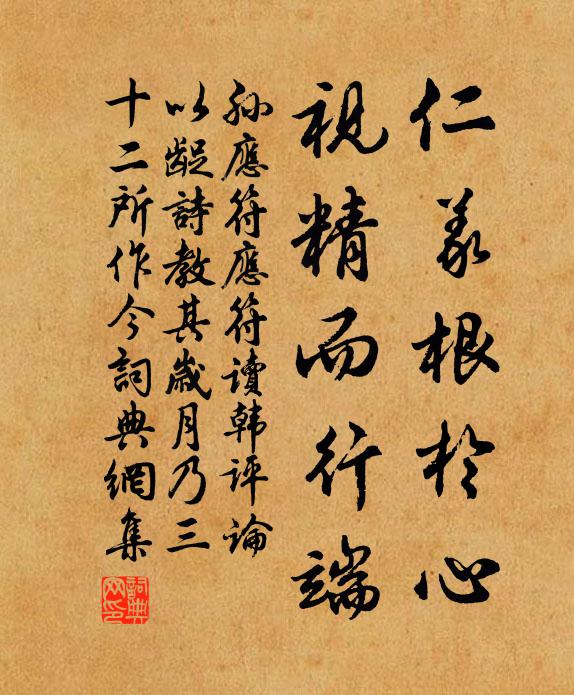 仁義根於心
視精而行端
孫應符應符讀韩评論
以龊詩教其歲月乃三
十二所作今詞典網集
詞典網印